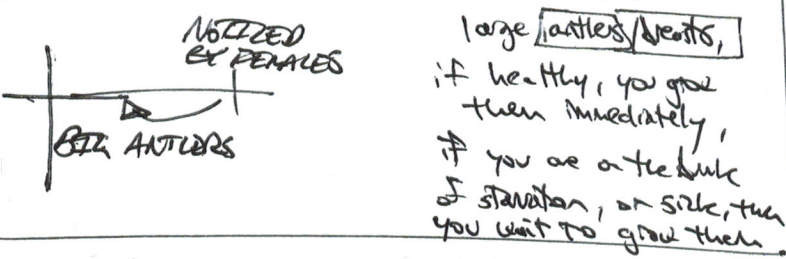 NOTIZED
BY FEMALES
BIG ANTLERS
large antlers/breasts,
if healthy, you grow
them immediately,
if you are on the brink
of starvation, or sick, then
you wait to grow them